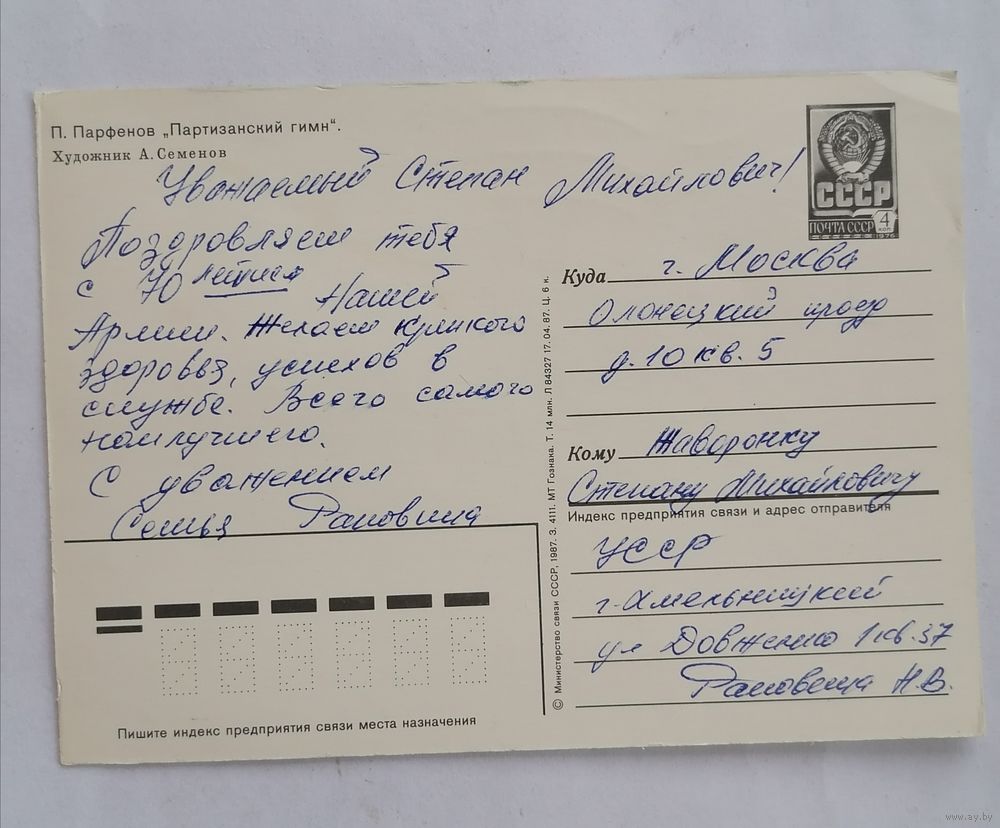 П. Парфенов „Партизанский гимн“.
Художник А. Семенов
Уважаемый Степан Михайлович!
Поздравляем тебя
с 70 летием Нашей
Армии. Желаем крепкого
здоровья, успехов в
службе. Всего самого
наилучшего.
С уважением
Семья
СССР
ПОЧТА СССР 4 коп
1976
Куда г. Москва
Олонецкий проезд
д. 10 кв. 5
Кому Жаворонку
Степану Михайловичу
Индекс предприятия связи и адрес отправителя
УССР
г. Хмельницкий
ул Довженко 1 кв. 37
Н.В.
© Министерство связи СССР, 1987. З. 4111. МТ Гознака. Т. 14 млн. Л 84327 17.04.87. Ц. 6 к.
Пишите индекс предприятия связи места назначения
www.ay.by